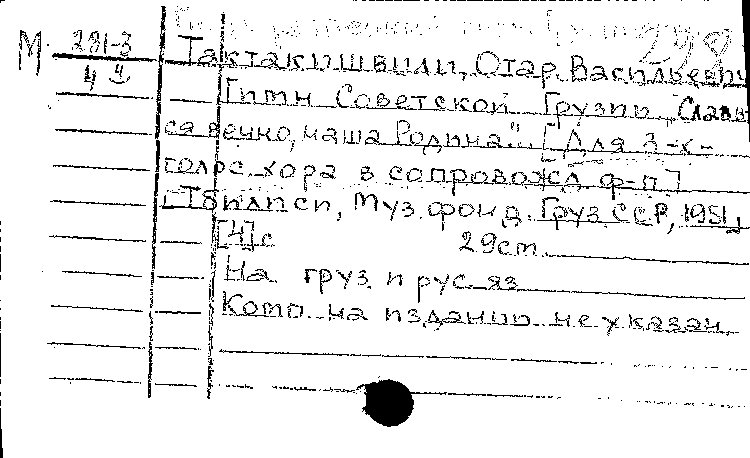 298
М 281-3
4
Тактакишвили, Отар Васильевич
Гимн Советской Грузии „Славь
ся вечно, наша Родина". [Для 3-х-
голос. хора в сопровожд. ф-п.]
[Тбилиси, Муз. фонд. Груз ССР, 1951]
[4] с 29 ст.
На груз и рус. яз
Комп. на издании не указан.